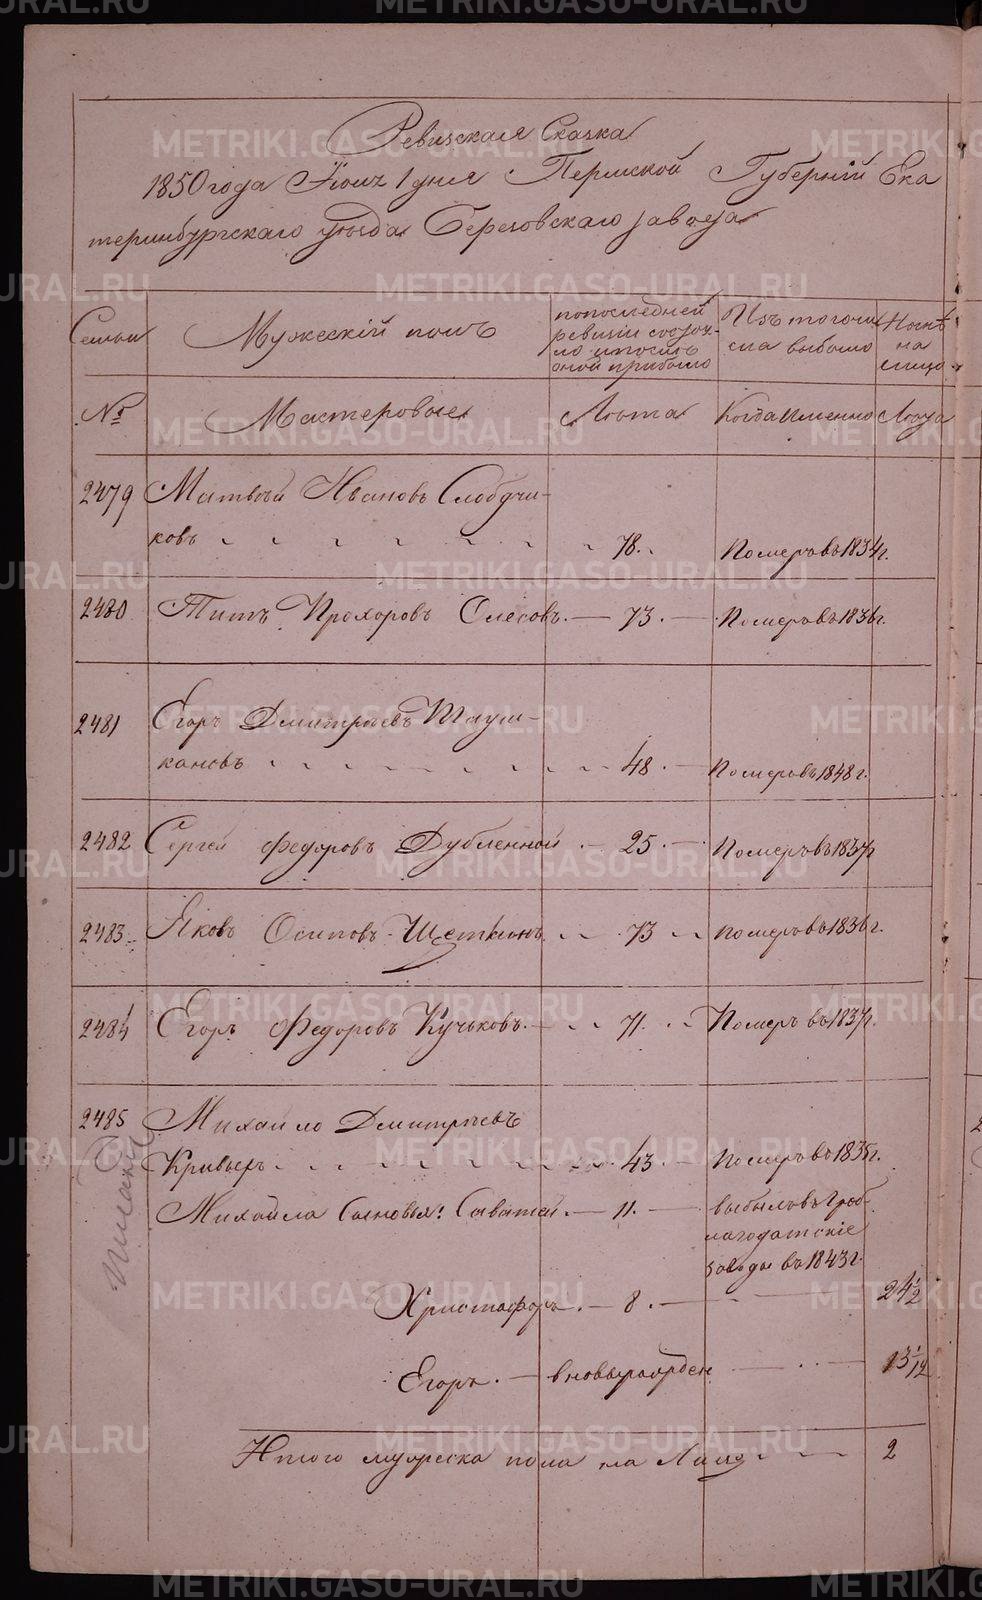 Ревизская Сказка
1850 года Июнь 1 дня Пермской Губернiи Ека
теринбургскаго уѣзда Березовскаго завода
Семьи
Мужескiй полъ
по последней ревизiи состояло и после оной прибыло
Изъ того числа выбыло
Нынѣ на лицо
№
Мастеровые
Лѣта
Когда именно
Лѣта
2479 Матвѣй Ивановъ Слобдчи-
ковъ 78. Померъ въ 1834г.
2480 Титъ Прохоровъ Олесовъ. — 73. — Померъ въ 1836г.
2481 Егоръ Дмитрiевъ Плуш-
кановъ 48. — Померъ въ 1848г.
2482 Сергей Федоровъ Дубленной — 25. — Померъ въ 1837г
2483 Яковъ Осиповъ Щеткинъ 73 Померъ въ 1836г.
2484 Егоръ Федоровъ Кучьковъ. — 71. Померъ въ 1837г.
2485 Михайло Дмитрiевъ
Кривыхъ 43. — Померъ въ 1835г.
Михайла Сыновья: Саватей. — 11. — выбылъ въ Гроб-
лагодатскiе
заводы въ 1843г.
Христофоръ. — 8. — 24 1/2
Егоръ. — вновьрожден. — 13 1/12
Итого мужеска пола на лицо 2
METRIKI.GASO-URAL.RU